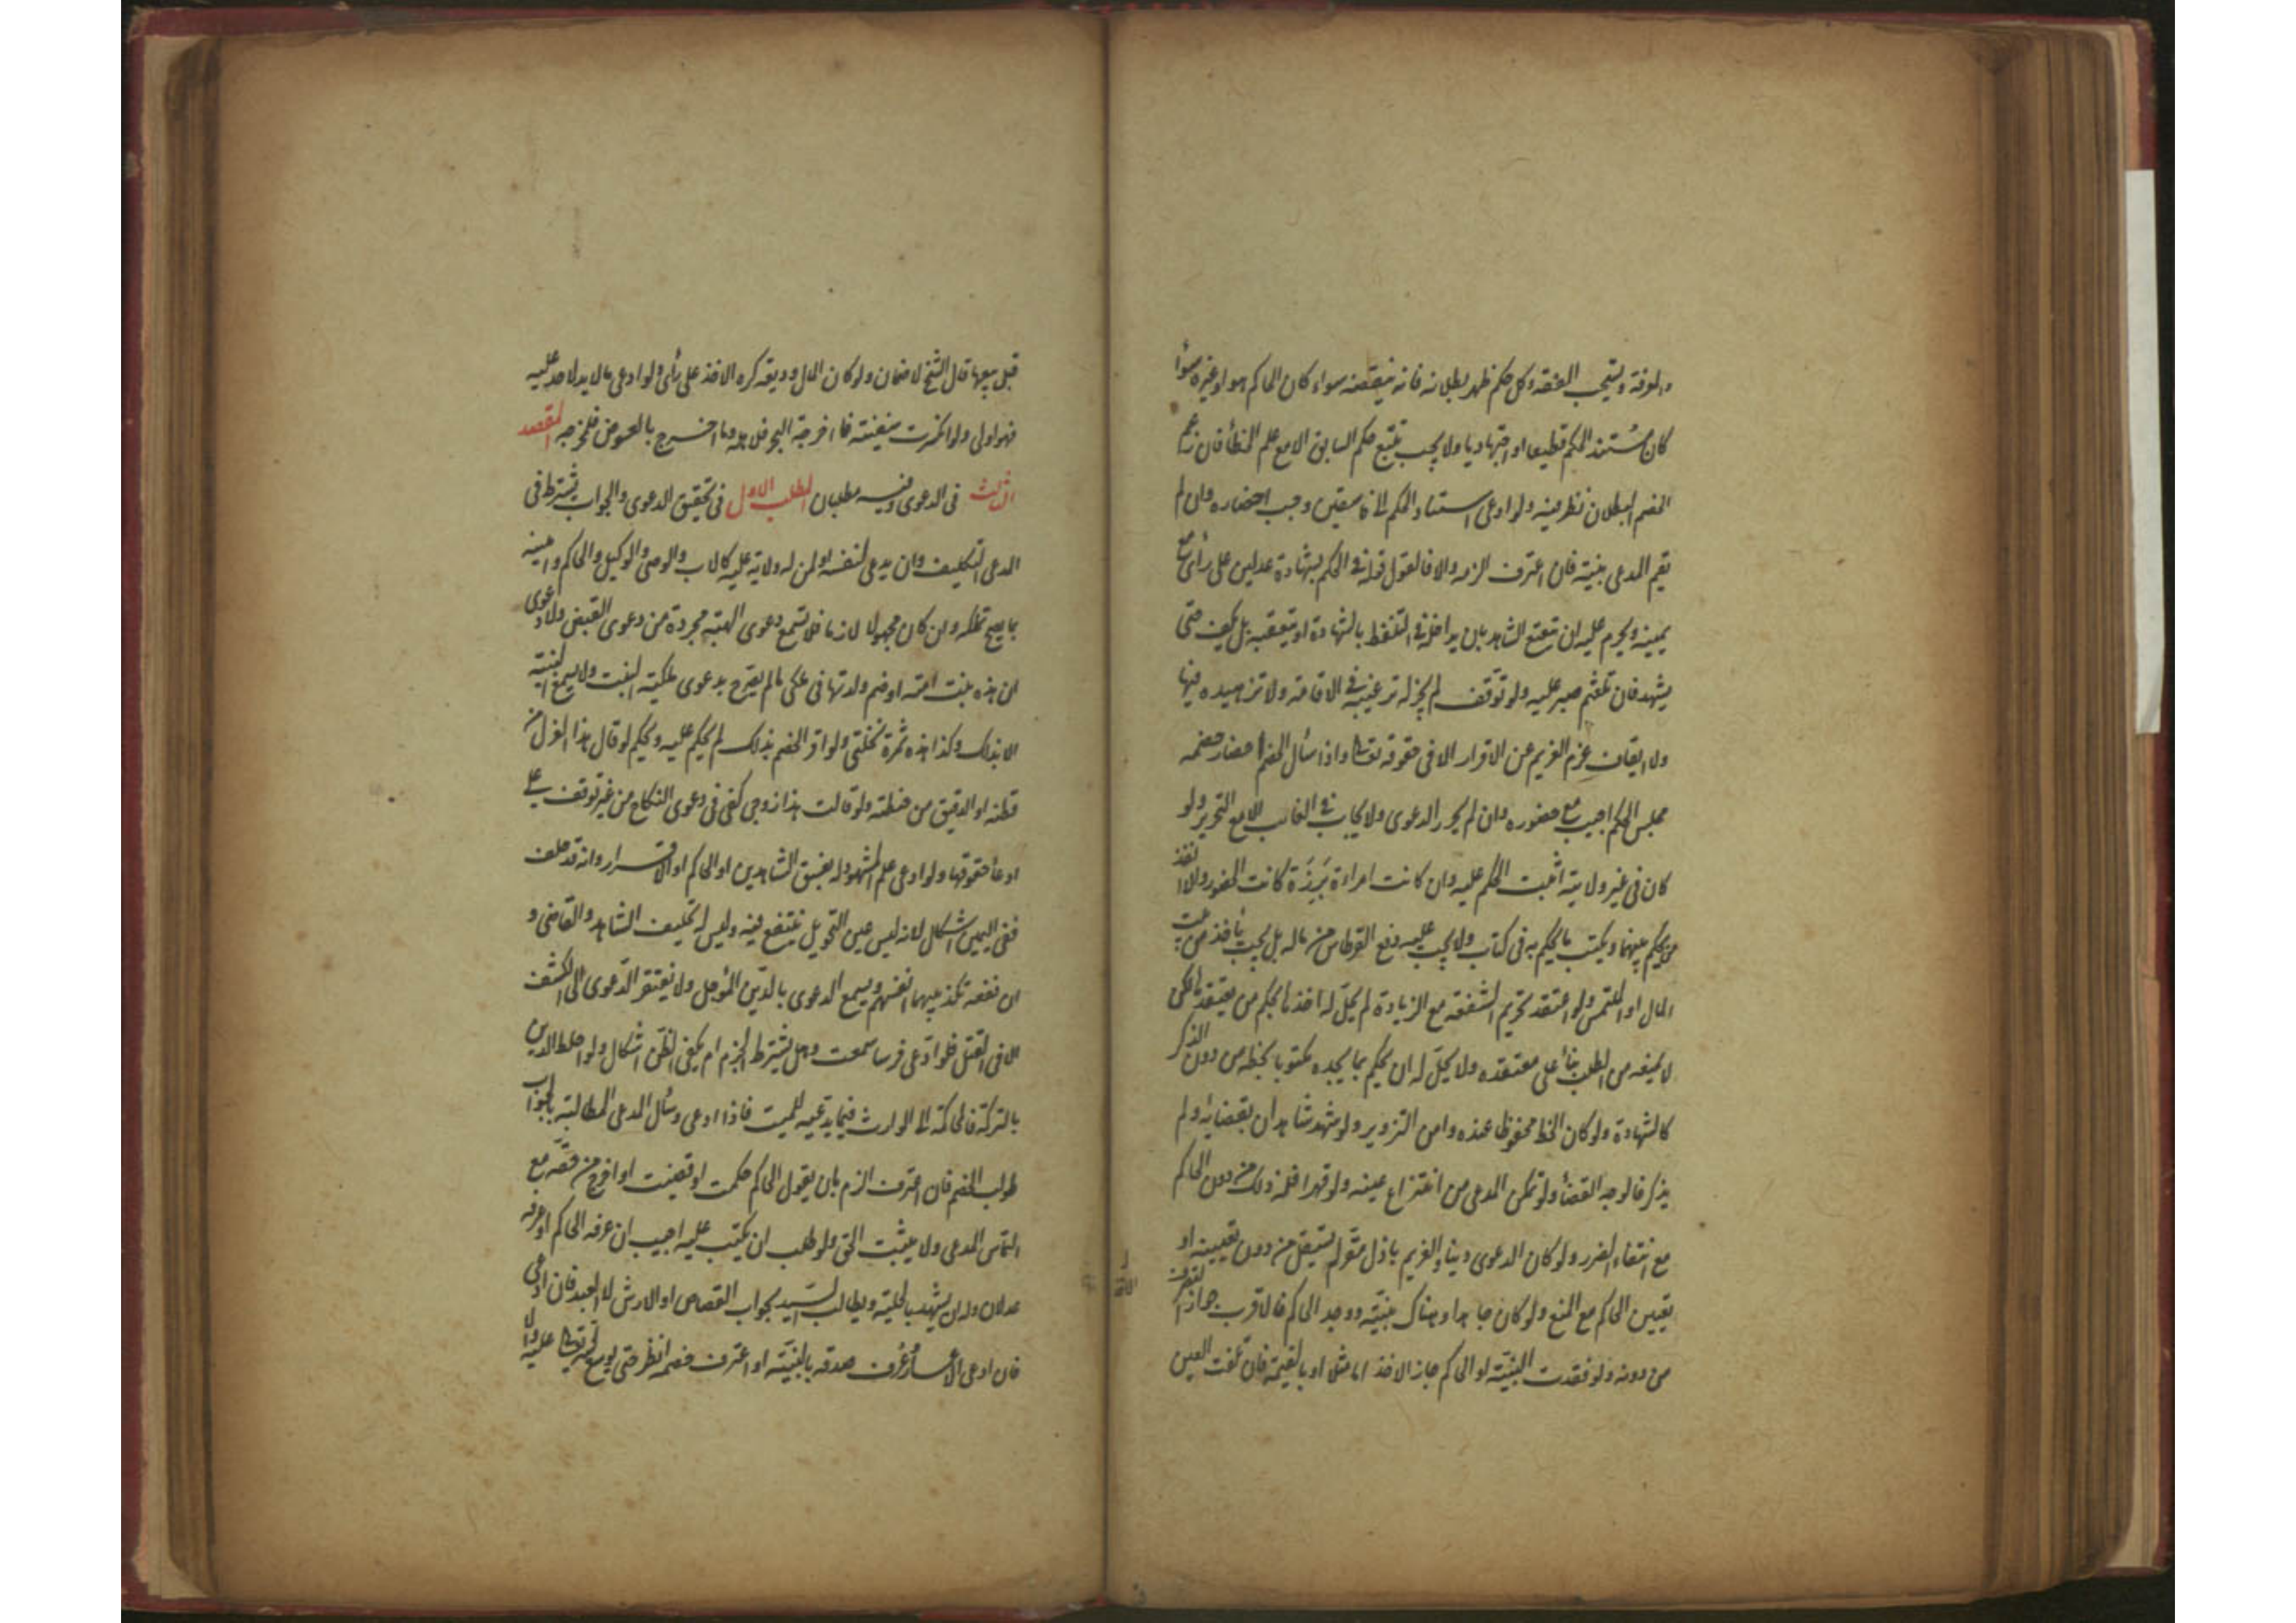 والعفة ويستحب الفقه وكل حكم ظهر بطلانه فانه ينقضه سواء كان الحاكم هو او غيره سواء
كان مستند الحكم قطعيا او اجتهاديا ولا يجب تتبع حكم السابق الا مع علم الخطأ فان زعم
الخصم البطلان نظر فيه ولو ادعى استناد الحكم الى فاسقين وجب احضاره وان لم
يقم المدعى بينة فان اعترف الزمه والا فالقول قوله فى الحكم بشهادة عدلين على رأى مع
يمينه ويحرم عليه ان يتعتع الشاهد بان يداخله فى التلفظ بالشهادة او يتعقبه بل يكف حتى
يشهد فان تلعثم صبر عليه ولو توقف لم يجز له ترغيبه فى الاقامة ولا تزهيده فيها
ولا ايقاف عزم الغريم عن الاقرار الا فى حقوقه تعالى واذا سأل الخصم احضار خصمه
مجلس الحكم اجيب مع حضوره وان لم يحرر الدعوى ولا يجاب فى الغائب الا مع التحرير ولو
كان فى غير ولايته اثبت الحكم عليه وان كانت امراءة بَرزَة كانت الحضور والا انفذ
من يحكم بينهما ويكتب ما يحكم به فى كتاب ولا يجب عليه دفع القرطاس من ماله بل يجب يأخذ من بيت
المال او الملتمس ولو اعتقد تحريم الشفعة مع الزيادة لم يحل له اخذها بحكم من يعتقدها لكن
لا يمنعه من الطلب بناء على معتقده ولا يحل له ان يحكم بما يجده مكتوبا بخطه من دون الذكر
كالشهادة ولو كان الخط محفوظا عنده وامن التزوير ولو شهد شاهدان بقضائه ولم
يذكر فالوجه القضاء ولو تمكن المدعى من انتزاع عينه ولو قهرا فله ذلك من دون الحاكم
مع انتفاء الضرر ولو كان الدعوى دينا والغريم باذل مقر لم يستقل من دون تعيينه او
تعيين الحاكم مع المنع ولو كان جاحدا وهناك بينة ووجد الحاكم فالاقرب جواز التصرف
من دونه ولو فقدت البينة او الحاكم جاز الاخذ اما مثلا او بالقيمة فان تلفت العين
قبل بيعها قال الشيخ لا ضمان ولو كان المال وديعة كره الاخذ على رأى ولو ادعى مالا يد لاحد عليه
فهو اولى ولو انكسرت سفينة فما اخرجه البحر فلاهله وما اخرج بالغوص فلمخرجه المقصد
الثالث فى الدعوى وفيه مطلبان المطلب الاول فى تحقيق الدعوى والجواب يشترط فى
المدعى التكليف وان يدعى لنفسه او لمن له ولاية عليه كالاب والوصى والوكيل والحاكم وامينه
بما يصح تملكه وان كان مجهولا لازما فلا تسمع دعوى الهبة مجردة من دعوى القبض ولا دعوى
ان هذه بنت امته او ضم ولدتها فى ملكى ما لم يصرح بدعوى ملكية البنت ولا يسمع البينة
الا بذلك وكذا هذه ثمرة نخلتى ولو اقر الخصم بذلك لم يحكم عليه ويحكم لو قال هذا الغزل من
قطنه او الدقيق من حنطته ولو قالت هذا زوجى كفى فى دعوى النكاح من غير توقف على
ادعاء حقوقها ولو ادعى علم المشهود له بفسق الشاهدين او الحاكم او الاقرار وانه قد حلف
ففى اليمين اشكال لانه ليس عين الحق بل ينتفع فيه وليس له تحليف الشاهد والقاضى و
ان نفعه تكذيبهما انفسهم ويسمع الدعوى بالدين المؤجل ولا يفتقر الدعوى الى الكشف
الا فى القتل فلو ادعى فرسا سمعت وهل يشترط الجزم ام يكفى الظن اشكال ولو احاط الدين
بالتركة فالمحاكمة الى الوارث فيما يدعيه للميت فاذا ادعى وسأل المدعى المطالبة بالجواب
طولب الخصم فان اعترف الزم بان يقول الحاكم حكمت او قضيت او اخرج من حقه مع
التماس المدعى ولا يثبت الحق ولو طلب ان يكتب عليه اجيب ان عرفه الحاكم او عرفه
عدلان وله ان يشهد بالحلية ويطالب السيد بجواب القصاص او الارش لا العبد فان ادعى
فان ادعى الاعسار وعرف صدقه بالبينة او اعترف خصمه انظر حتى يوسع الله تعالى عليه والا